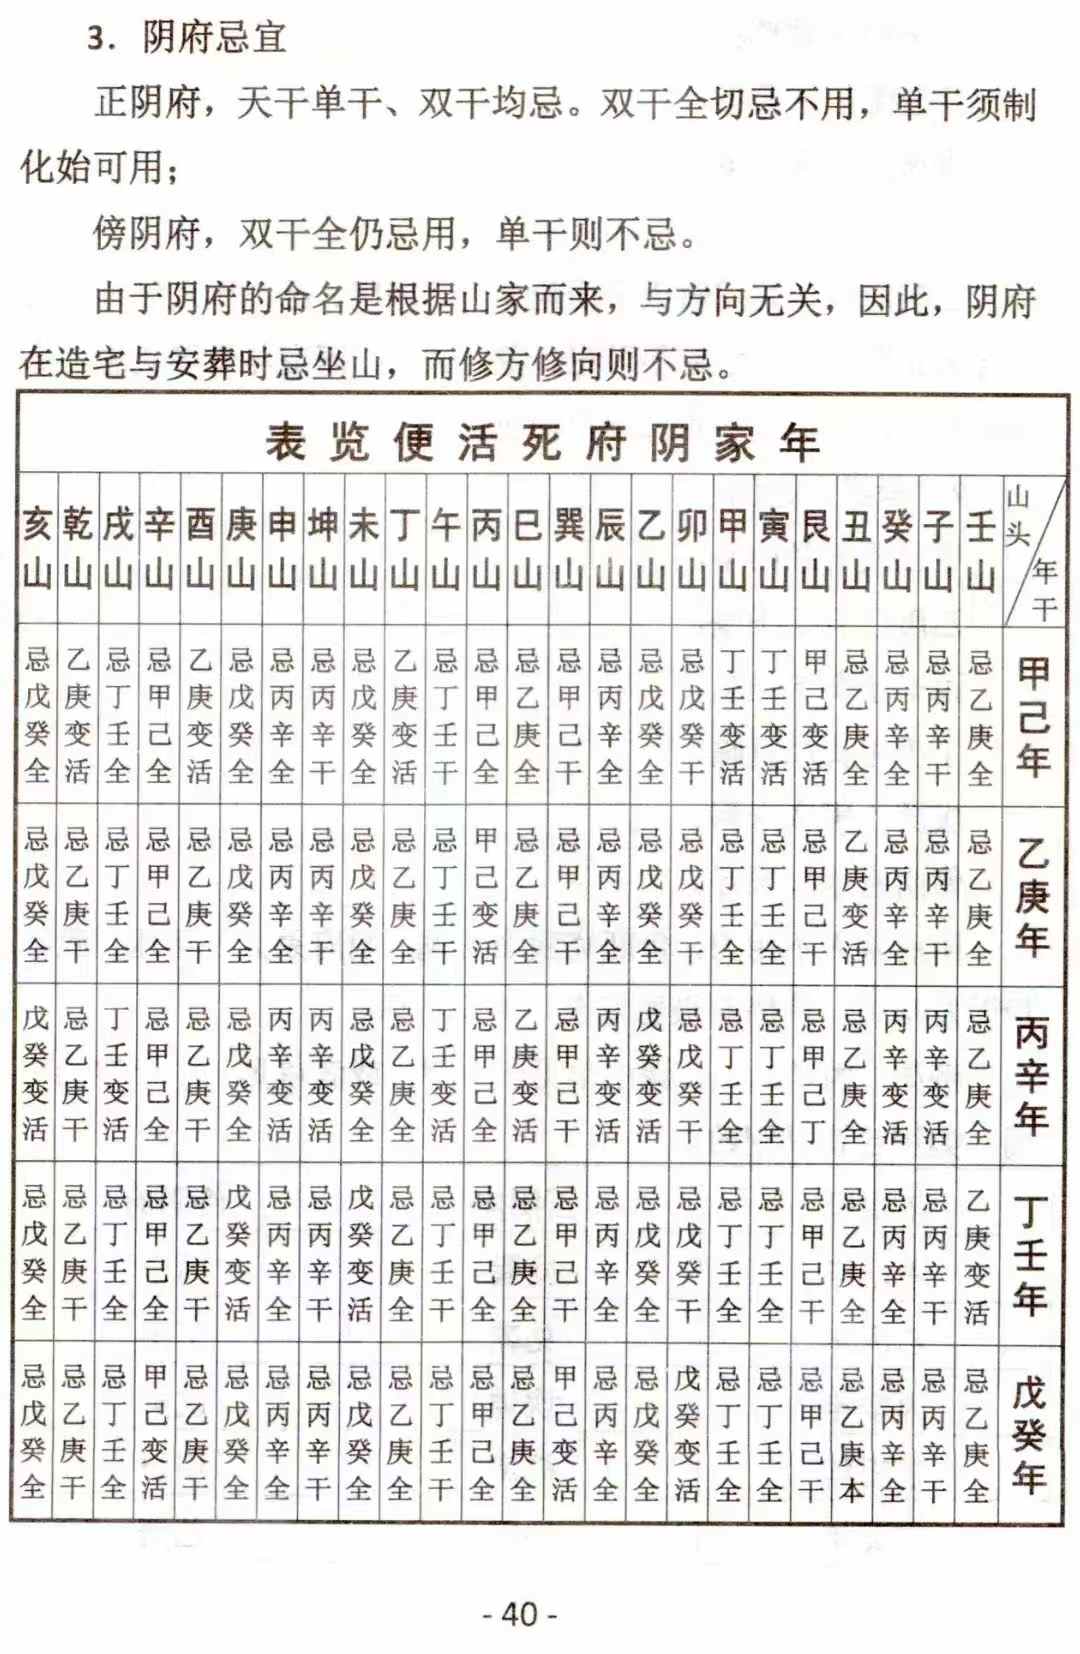 3．阴府忌宜
正阴府，天干单干、双干均忌。双干全切忌不用，单干须制
化始可用；
傍阴府，双干全仍忌用，单干则不忌。
由于阴府的命名是根据山家而来，与方向无关，因此，阴府
在造宅与安葬时忌坐山，而修方修向则不忌。
年家阴府死活便览表
山头 年干 壬山 子山 癸山 丑山 艮山 寅山 甲山 卯山 乙山 辰山 巽山 巳山 丙山 午山 丁山 未山 坤山 申山 庚山 酉山 辛山 戌山 乾山 亥山
甲己年 忌乙庚全 忌丙辛干 忌丙辛全 忌乙庚全 甲己变活 丁壬变活 丁壬变活 忌戊癸干 忌戊癸全 忌丙辛全 忌甲己干 忌乙庚全 忌甲己全 忌丁壬干 乙庚变活 忌戊癸全 忌丙辛干 忌丙辛全 忌戊癸全 乙庚变活 忌甲己全 忌丁壬全 乙庚变活 忌戊癸全
乙庚年 忌乙庚全 忌丙辛干 忌丙辛全 乙庚变活 忌甲己干 忌丁壬全 忌丁壬全 忌戊癸干 忌戊癸全 忌丙辛全 忌甲己干 忌乙庚全 甲己变活 忌丁壬干 忌乙庚全 忌戊癸全 忌丙辛干 忌丙辛全 忌戊癸全 忌乙庚干 忌甲己全 忌丁壬全 忌乙庚干 忌戊癸全
丙辛年 忌乙庚全 丙辛变活 丙辛变活 忌乙庚全 忌甲己丁 忌丁壬全 忌丁壬全 忌戊癸干 戊癸变活 丙辛变活 忌甲己干 乙庚变活 忌甲己全 丁壬变活 忌乙庚全 忌戊癸全 丙辛变活 丙辛变活 忌戊癸全 忌乙庚干 忌甲己全 丁壬变活 忌乙庚干 戊癸变活
丁壬年 乙庚变活 忌丙辛干 忌丙辛全 忌乙庚全 忌甲己干 忌丁壬全 忌丁壬全 忌戊癸干 忌戊癸全 忌丙辛全 忌甲己干 忌乙庚全 忌甲己全 忌丁壬干 忌乙庚全 戊癸变活 忌丙辛干 忌丙辛全 戊癸变活 忌乙庚干 忌甲己全 忌丁壬全 忌乙庚干 忌戊癸全
戊癸年 忌乙庚全 忌丙辛干 忌丙辛全 忌乙庚本 忌甲己干 忌丁壬全 忌丁壬全 戊癸变活 忌戊癸全 忌丙辛全 甲己变活 忌乙庚全 忌甲己全 忌丁壬干 忌乙庚全 忌戊癸全 忌丙辛干 忌丙辛全 忌戊癸全 忌乙庚干 甲己变活 忌丁壬全 忌乙庚干 忌戊癸全
- 40 -